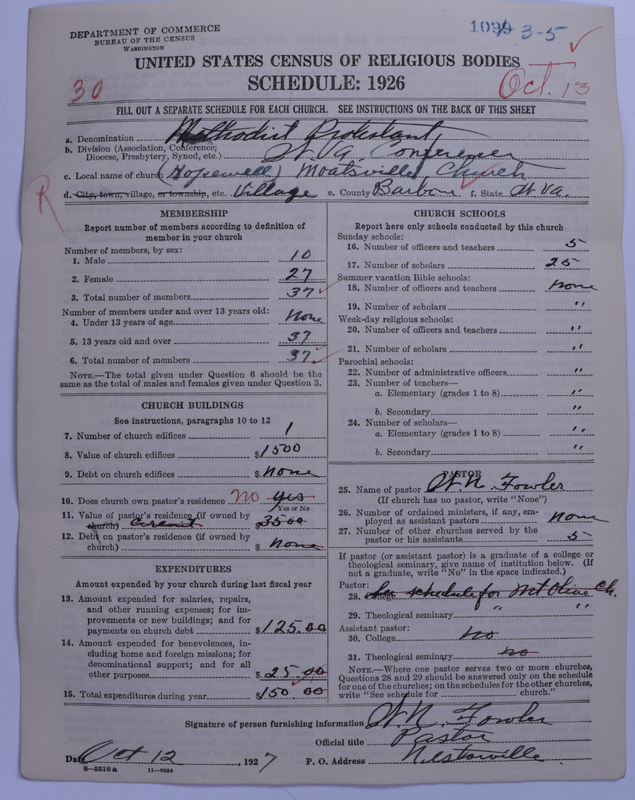 DEPARTMENT OF COMMERCE
BUREAU OF THE CENSUS
WASHINGTON
109 3-5
UNITED STATES CENSUS OF RELIGIOUS BODIES
SCHEDULE: 1926
30
Oct. 13
FILL OUT A SEPARATE SCHEDULE FOR EACH CHURCH. SEE INSTRUCTIONS ON THE BACK OF THIS SHEET
a. Denomination Methodist Protestant
b. Division (Association, Conference, Diocese, Presbytery, Synod, etc.) W Va Conference
c. Local name of church (Hopewell) Moatsville Church
d. City, town, village, or township, etc. Village e. County Barbour f. State W Va.
R
MEMBERSHIP
Report number of members according to definition of
member in your church
Number of members, by sex:
1. Male 10
2. Female 27
3. Total number of members 37
Number of members under and over 13 years old:
4. Under 13 years of age None
5. 13 years old and over 37
6. Total number of members 37
NOTE.—The total given under Question 6 should be the
same as the total of males and females given under Question 3.
CHURCH BUILDINGS
See instructions, paragraphs 10 to 12
7. Number of church edifices 1
8. Value of church edifices $1500
9. Debt on church edifices $None
10. Does church own pastor's residence No yes
Yes or No
11. Value of pastor's residence (if owned by
church) Circuit $3500
12. Debt on pastor's residence (if owned by
church) $ None
EXPENDITURES
Amount expended by your church during last fiscal year
13. Amount expended for salaries, repairs,
and other running expenses; for im-
provements or new buildings; and for
payments on church debt $125.00
14. Amount expended for benevolences, in-
cluding home and foreign missions; for
denominational support; and for all
other purposes $25.00
15. Total expenditures during year $150 00
CHURCH SCHOOLS
Report here only schools conducted by this church
Sunday schools:
16. Number of officers and teachers 5
17. Number of scholars 25
Summer vacation Bible schools:
18. Number of officers and teachers None
19. Number of scholars "
Week-day religious schools:
20. Number of officers and teachers "
21. Number of scholars "
Parochial schools:
22. Number of administrative officers "
23. Number of teachers—
a. Elementary (grades 1 to 8) "
b. Secondary "
24. Number of scholars—
a. Elementary (grades 1 to 8) "
b. Secondary "
PASTOR
25. Name of pastor W. N. Fowler
(If church has no pastor, write "None")
26. Number of ordained ministers, if any, em-
ployed as assistant pastors None
27. Number of other churches served by the
pastor or his assistants 5
If pastor (or assistant pastor) is a graduate of a college or
theological seminary, give name of institution below. (If
not a graduate, write "No" in the space indicated.)
Pastor:
28. College See schedule for Mt Olive Ch.
29. Theological seminary " "
Assistant pastor:
30. College no
31. Theological seminary no
NOTE.—Where one pastor serves two or more churches,
Questions 28 and 29 should be answered only on the schedule
for one of the churches; on the schedules for the other churches,
write "See schedule for church."
Signature of person furnishing information W. N. Fowler
Official title Pastor
Date Oct 12, 1927 P. O. Address
8—5518a 11—9584